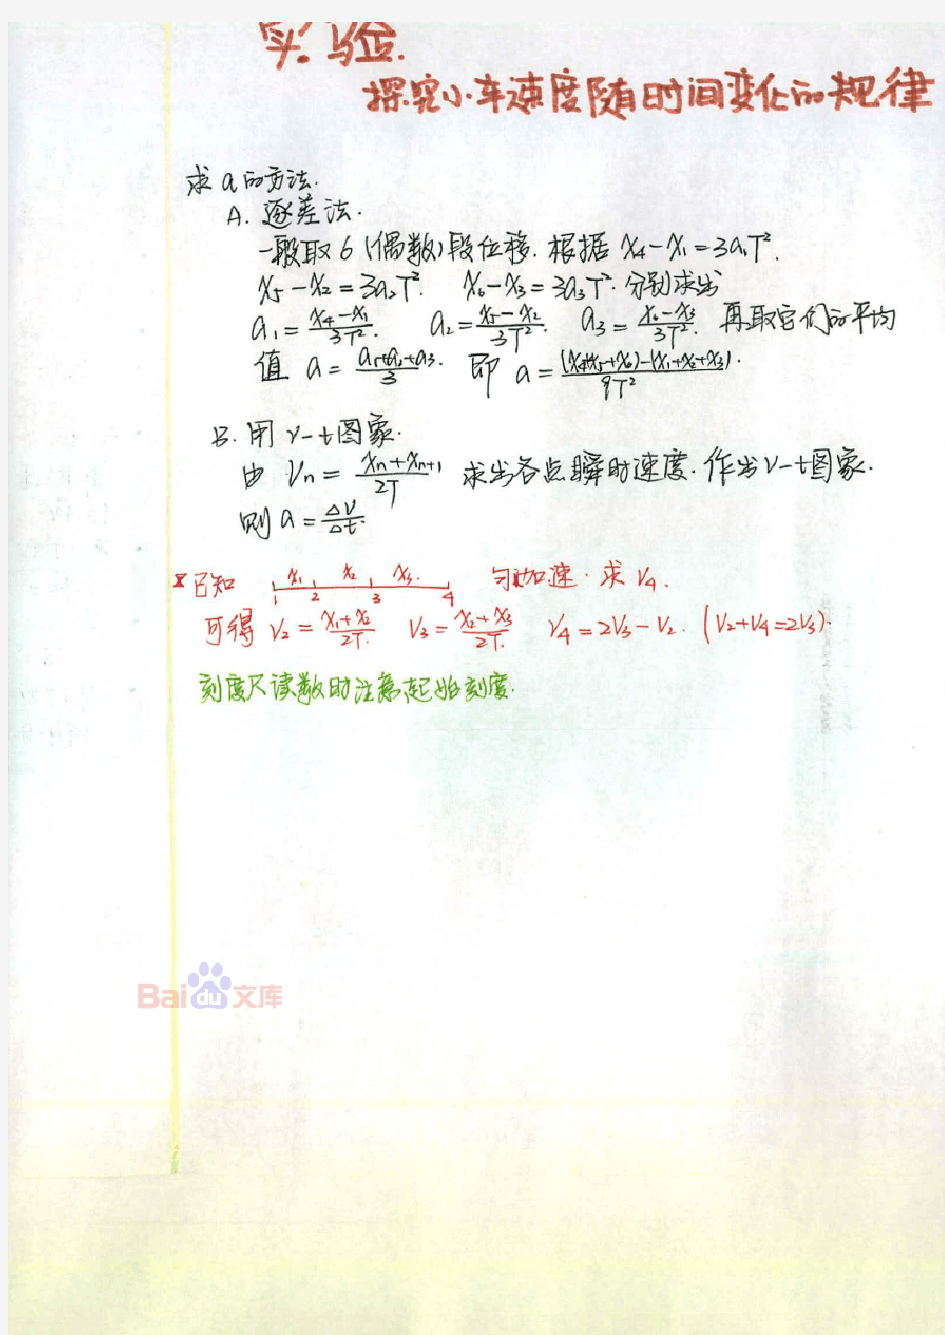 实验.
探究小车速度随时间变化的规律
求a的方法.
A. 逐差法.
一般取6(偶数)段位移. 根据 x₄-x₁=3a₁T².
x₅-x₂=3a₂T². x₆-x₃=3a₃T². 分别求出
a₁=(x₄-x₁)/3T². a₂=(x₅-x₂)/3T². a₃=(x₆-x₃)/3T². 再取它们的平均
值 a=(a₁+a₂+a₃)/3. 即 a=((x₄+x₅+x₆)-(x₁+x₂+x₃))/9T².
B. 用v-t图象.
由 Vn=(xn+xn+1)/2T 求出各点瞬时速度. 作出v-t图象.
则a=ΔV/Δt.
已知 x₁ x₂ x₃. 匀加速. 求V₄.
1 2 3 4
可得 V₂=(x₁+x₂)/2T. V₃=(x₂+x₃)/2T. V₄=2V₃-V₂. (V₂+V₄=2V₃).
刻度尺读数时注意起始刻度.
Baidu文库